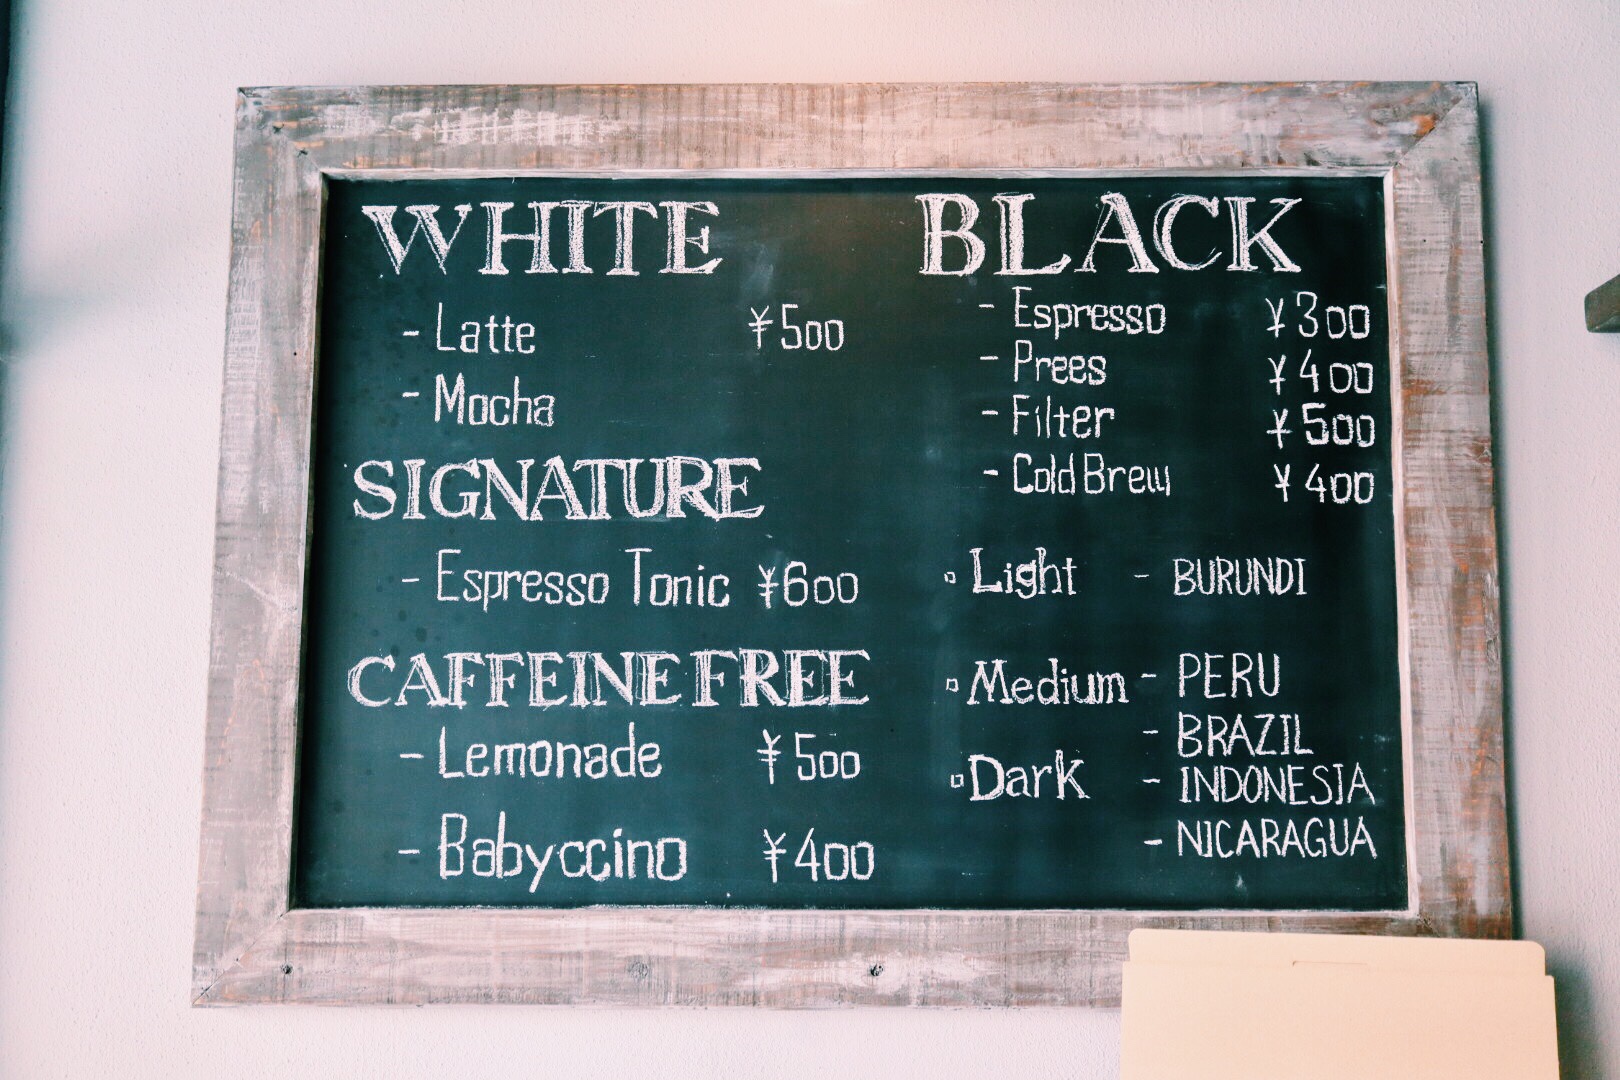 WHITE
- Latte ¥500
- Mocha
SIGNATURE
- Espresso Tonic ¥600
CAFFEINE FREE
- Lemonade ¥500
- Babyccino ¥400
BLACK
- Espresso ¥300
- Prees ¥400
- Filter ¥500
- Cold Brew ¥400
▫ Light - BURUNDI
▫ Medium - PERU
- BRAZIL
▫ Dark - INDONESIA
- NICARAGUA